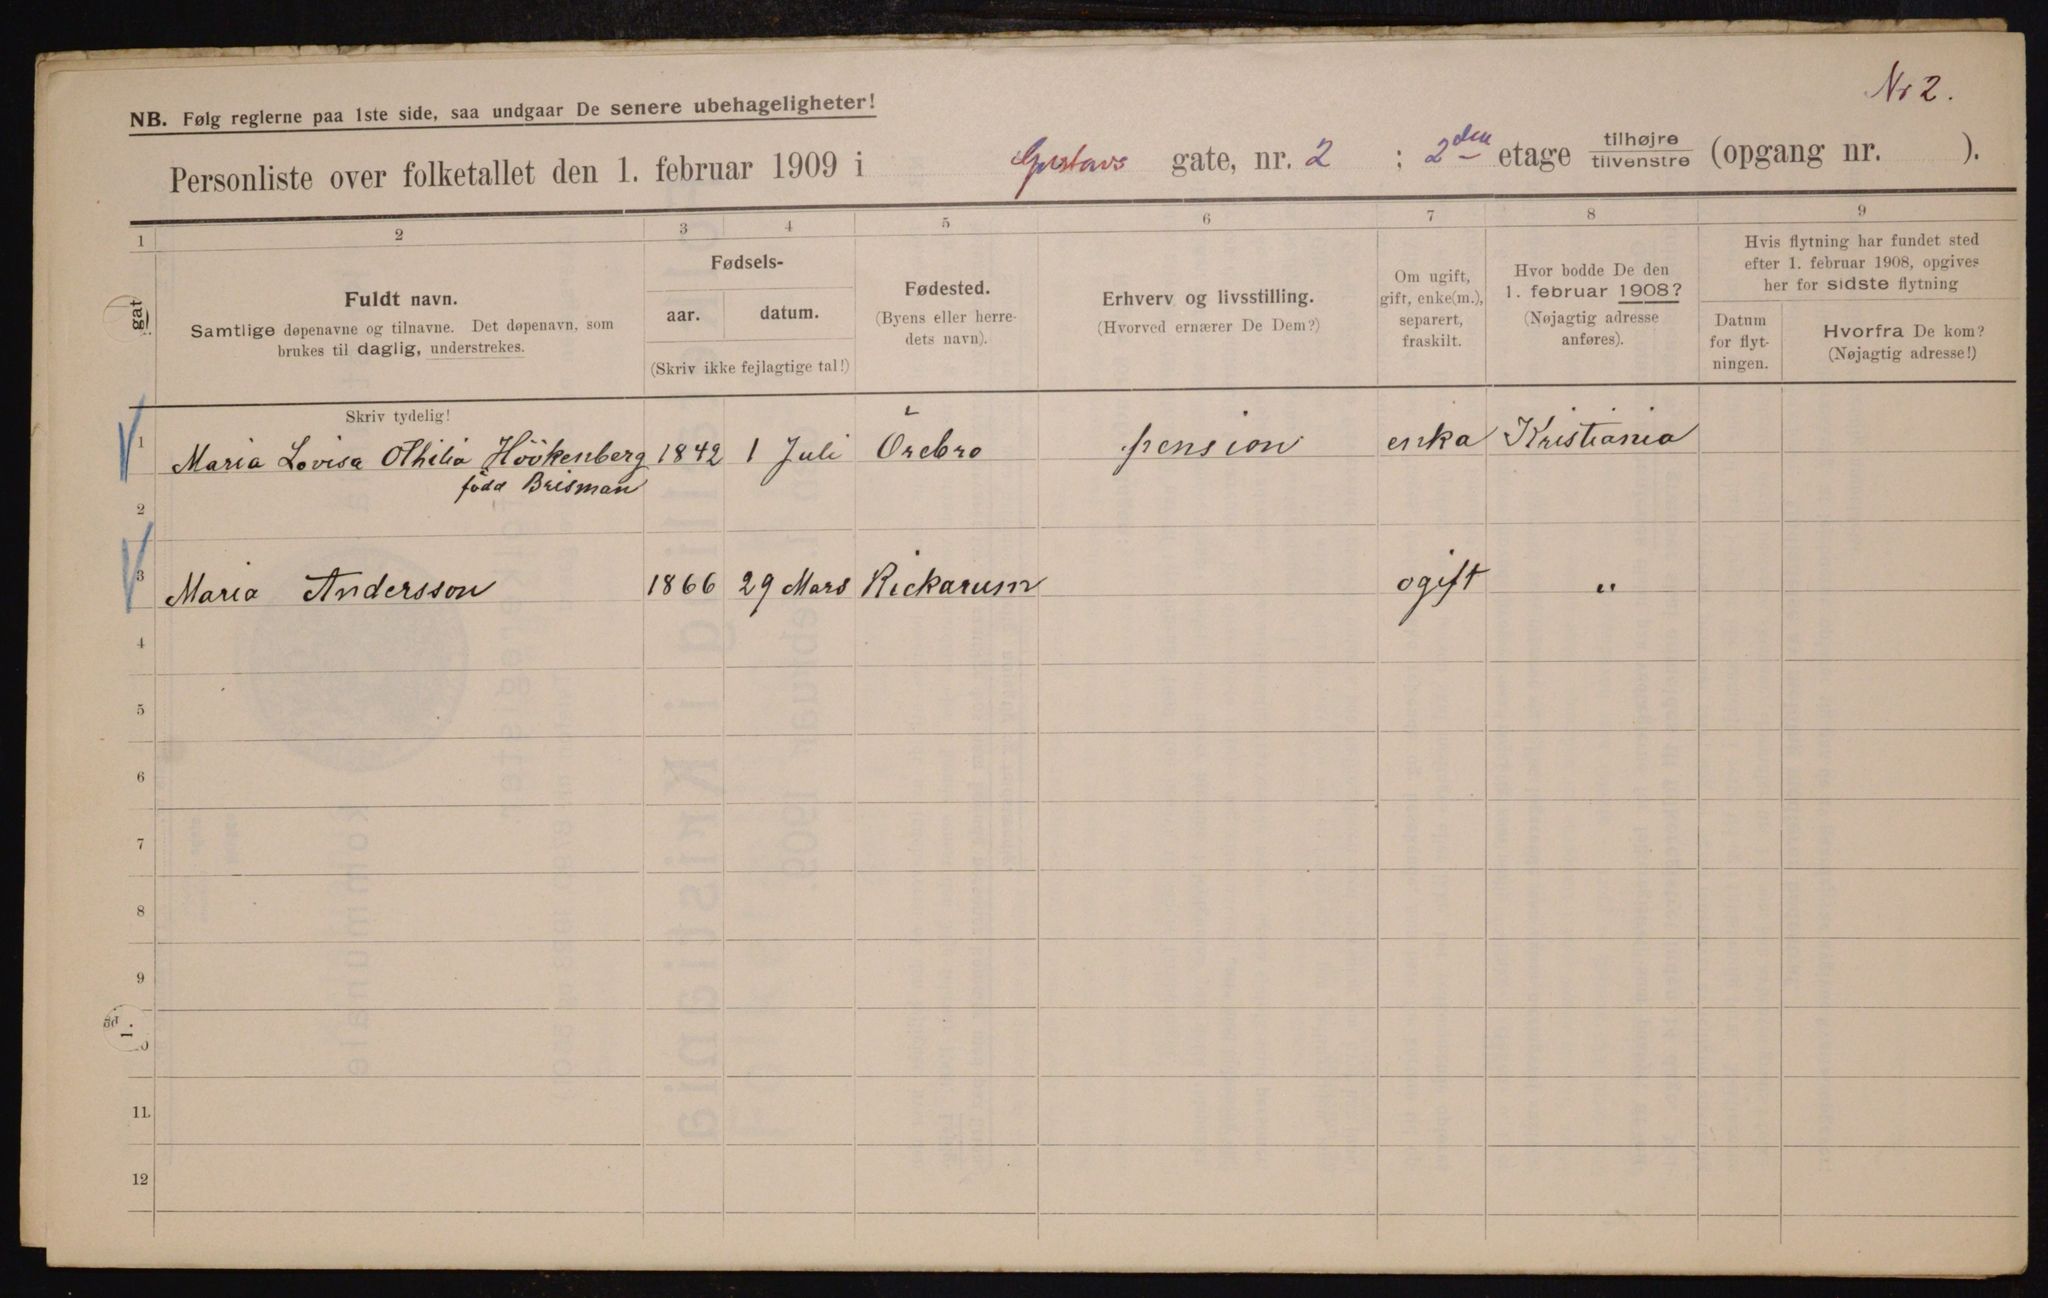 Nr 2.
NB. Følg reglerne paa 1ste side, saa undgaar De senere ubehageligheter!
Personliste over folketallet den 1. februar 1909 i Gustavs gate, nr. 2 ; 2den etage tilhøjre/tilvenstre (opgang nr. ).
1 2 3 4 5 6 7 8 9
gat
Fuldt navn.
Samtlige døpenavne og tilnavne. Det døpenavn, som
brukes til daglig, understrekes.
Fødsels-
aar. datum.
(Skriv ikke fejlagtige tal!)
Fødested.
(Byens eller herre-
dets navn).
Erhverv og livsstilling.
(Hvorved ernærer De Dem?)
Om ugift,
gift, enke(m.),
separert,
fraskilt.
Hvor bodde De den
1. februar 1908?
(Nøjagtig adresse
anføres).
Hvis flytning har fundet sted
efter 1. februar 1908, opgives
her for sidste flytning
Datum
for flyt-
ningen.
Hvorfra De kom?
(Nøjagtig adresse!)
Skriv tydelig!
1 Maria Lovisa Othilia Höökenberg 1842 1 Juli Örebro pension enka Kristiania
född Brisman
2
3 Maria Andersson 1866 29 Mars Rickarum ogift "
4
5
6
7
8
9
1.
11
12